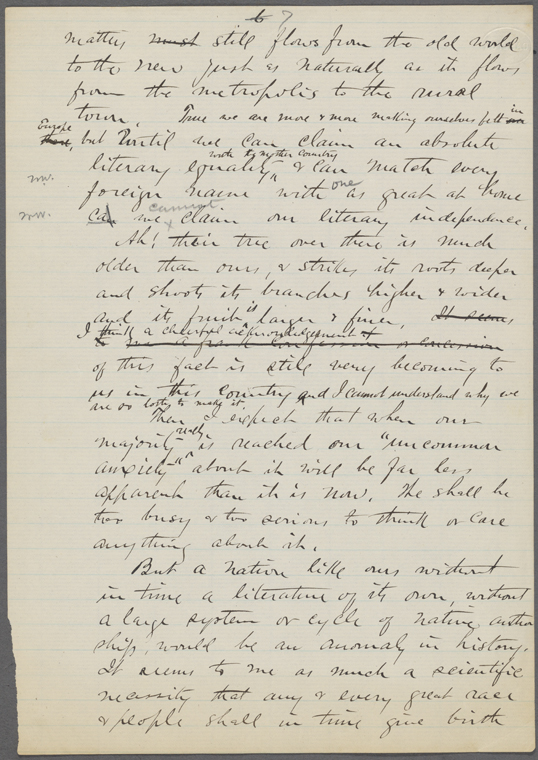 7
matters must still flows from the old world
to the new just as naturally as it flows
from the metropolis to the rural
town. True we are more & more making ourselves felt in
Europe, but until we can claim an absolute
with the mother country
literary equality, & can match every
foreign name with one as great at home
can we cannot claim our literary independence.
Ah! their tree over there is much
older than ours, & strikes its roots deeper
and shoots its branches higher & wider
and its fruit is larger & finer. It seems
I think a cheerful acknowledgement
to me a frank confession or concession
of this fact is still very becoming to
us in this country and I cannot understand why we
are so loth to make it.
Then I expect that when our
majority really is reached our "uncommon
anxiety" about it will be far less
apparent than it is now. We shall be
too busy & too serious to think or care
anything about it.
But a nation like ours without
in time a literature of its own, without
a large system or cycle of native author
ship, would be an anomaly in history.
It seems to me as much a scientific
necessity that any & every great race
& people shall in time give birth